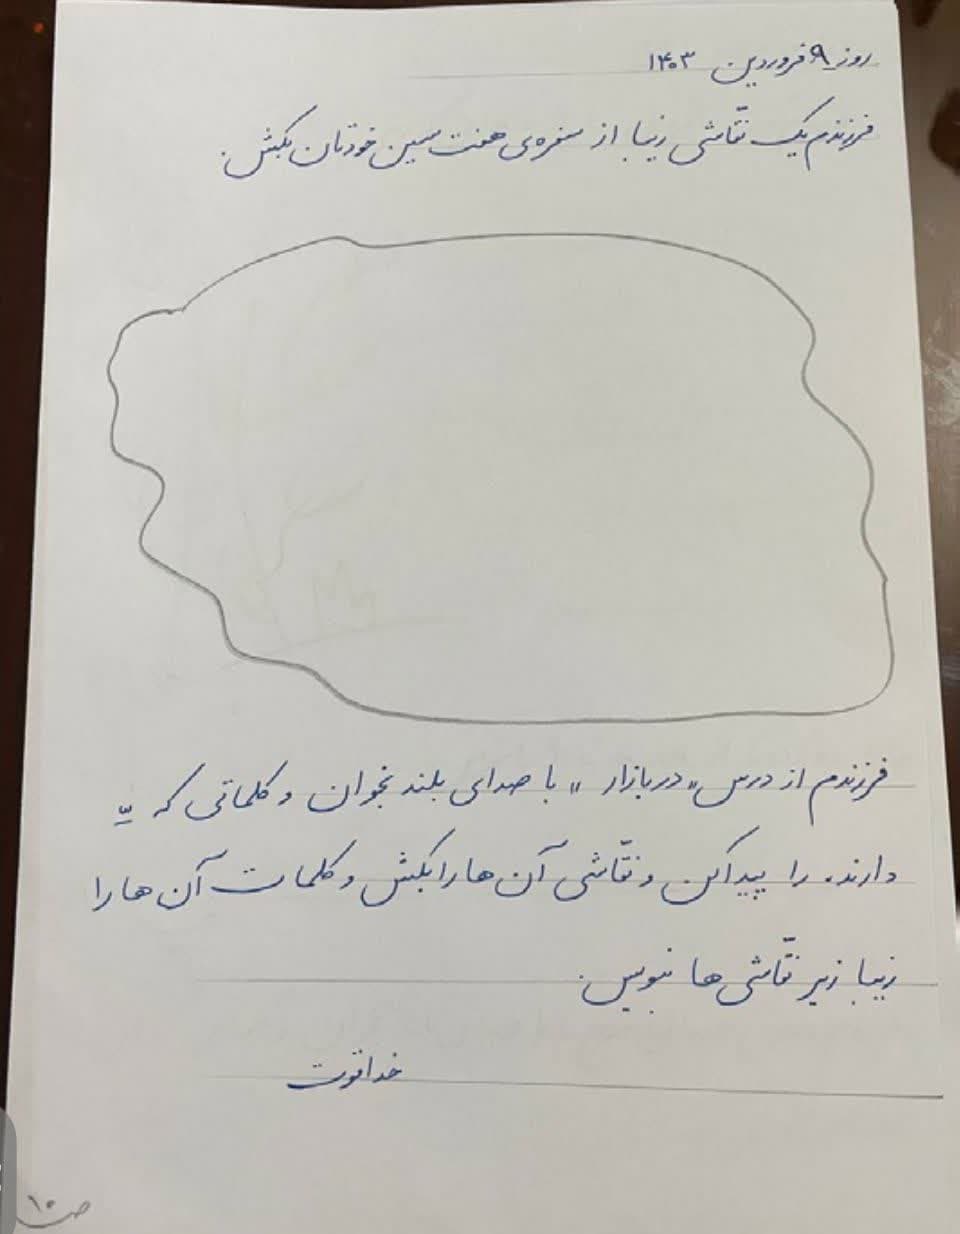 روز ۹ فروردین ۱۴۰۳
فرزندم یک نقّاشی زیبا از سفره‌ی هفت سین خودتان بکش.
فرزندم از درس «در بازار» با صدای بلند بخوان و کلماتی که ـّـ
دارند. را پیدا کن و نقّاشی آن ها را بکش و کلمات آن ها را
زیبا زیر نقّاشی ها بنویس.
خدا قوت
ص ۱۰